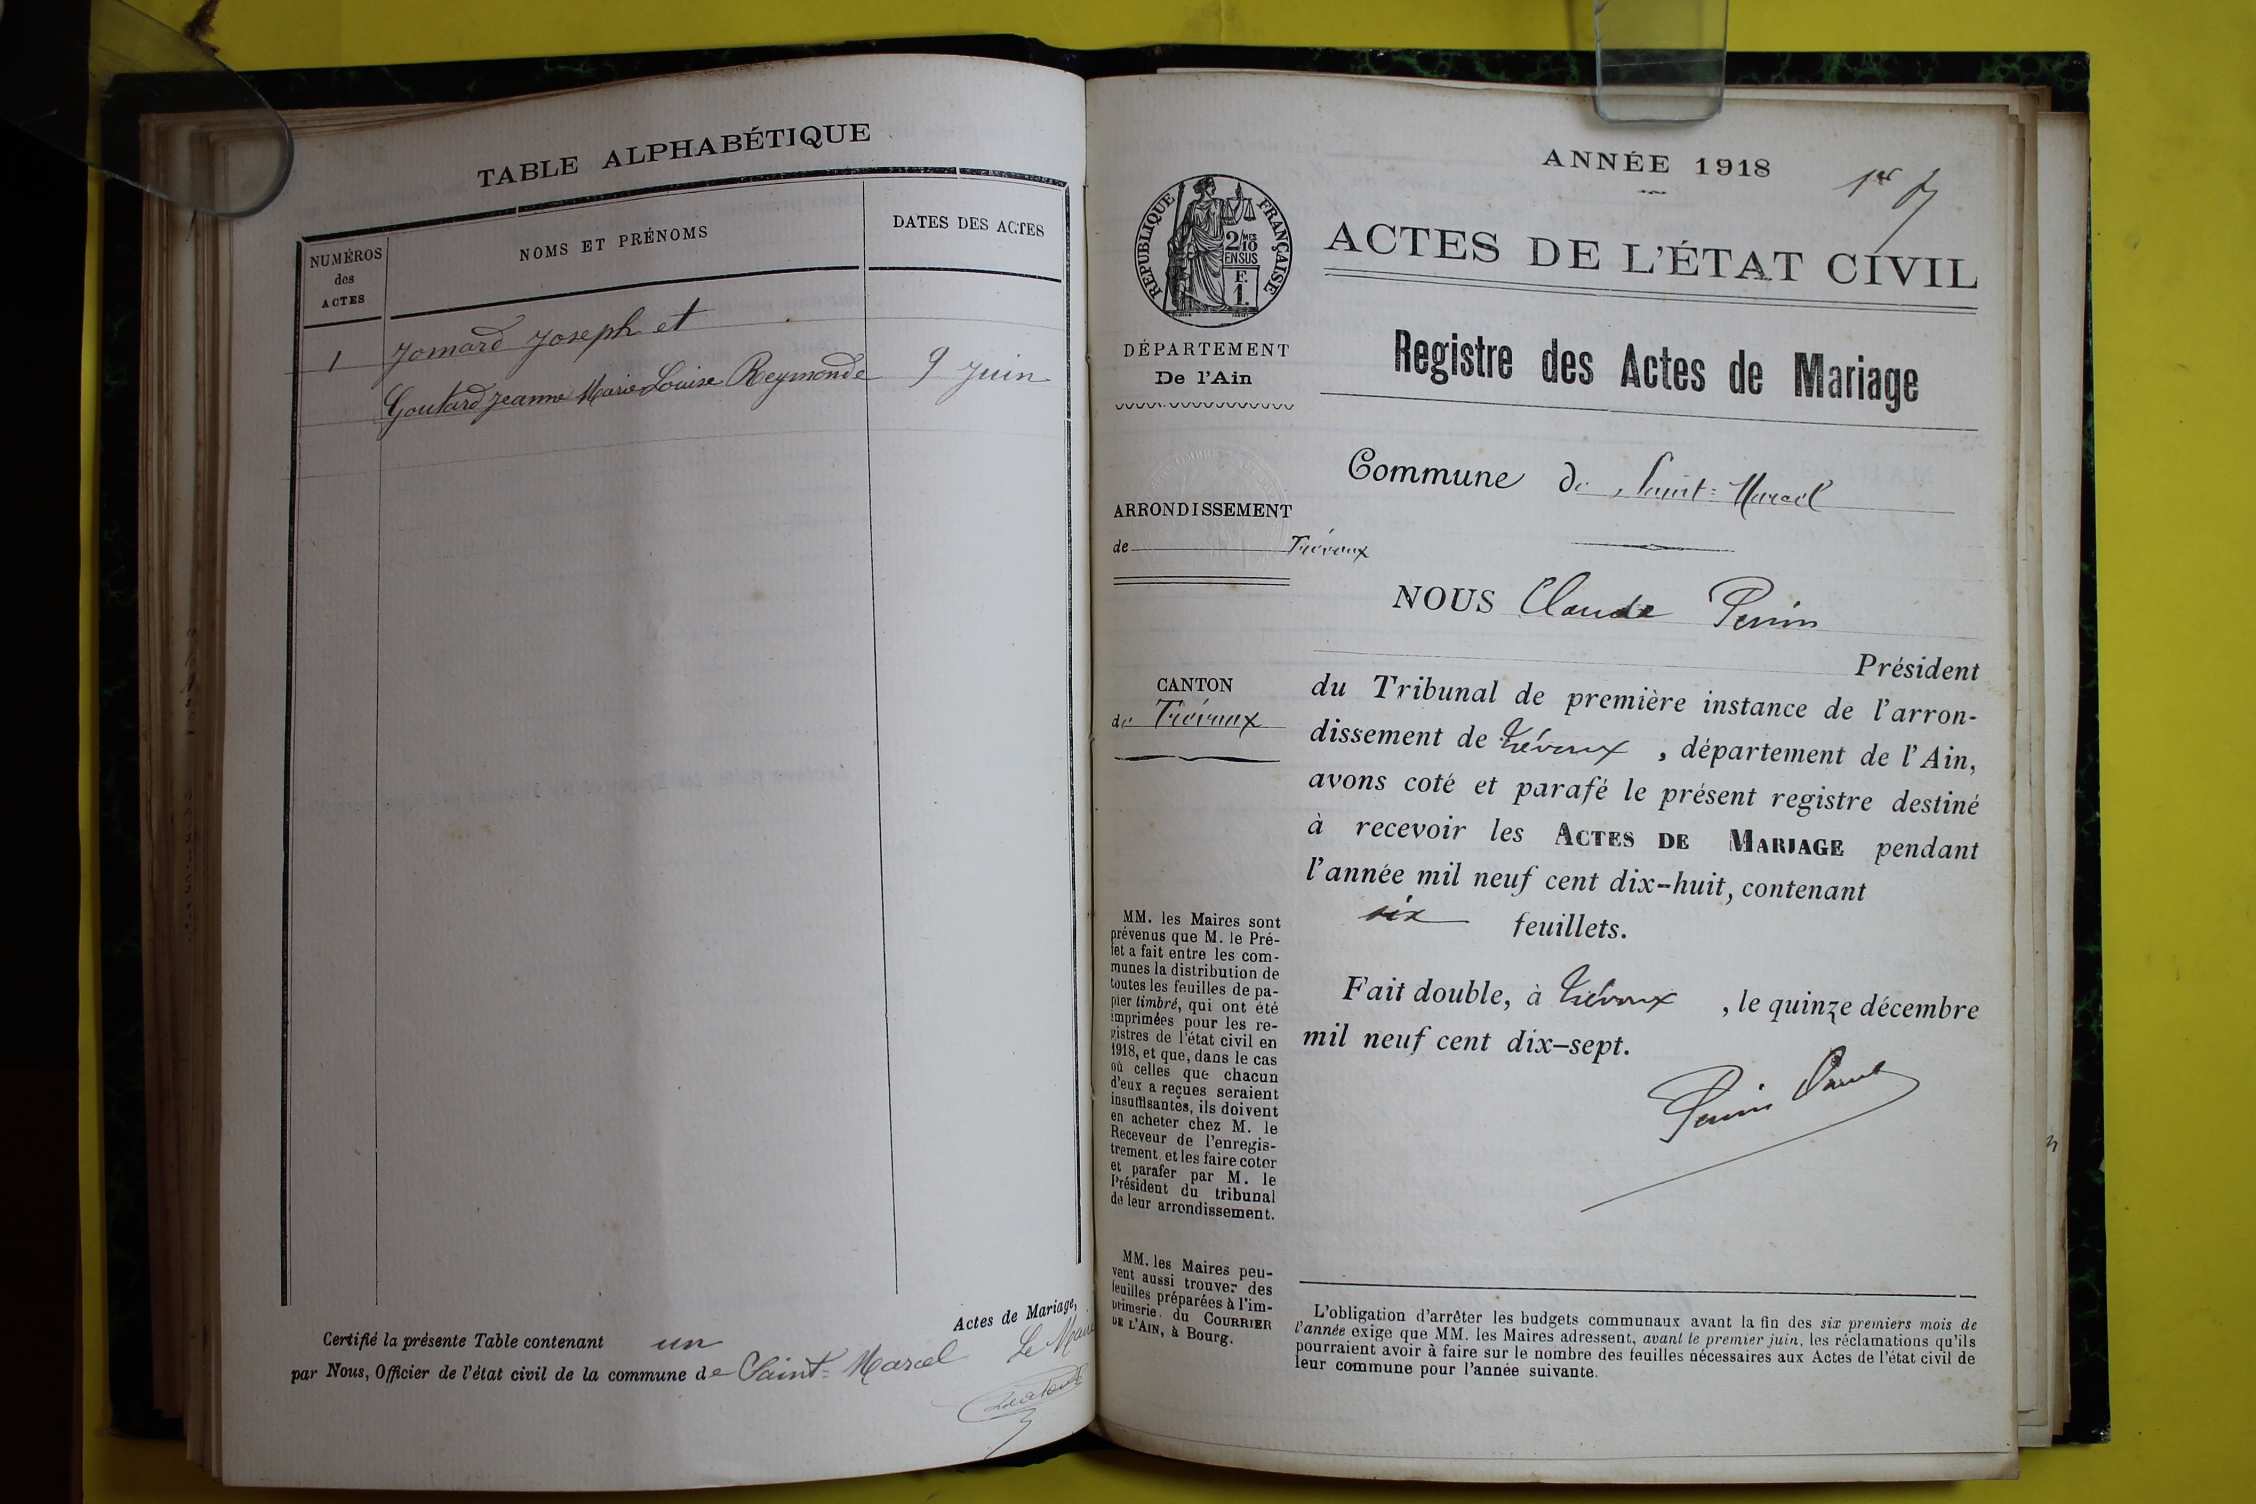 TABLE ALPHABÉTIQUE
NUMÉROS
des
ACTES
NOMS ET PRÉNOMS
DATES DES ACTES
1 Jomard Joseph et
Goutard Jeanne Marie Louise Reymonde 9 Juin
Actes de Mariage,
Certifié la présente Table contenant un
par Nous, Officier de l'état civil de la commune de Saint-Marcel
Le Maire
ANNÉE 1918
1er
ACTES DE L'ÉTAT CIVIL
RÉPUBLIQUE FRANÇAISE
2/10 MES
EN SUS
F.
1.
DÉPARTEMENT
De l'Ain
ARRONDISSEMENT
de Trévoux
CANTON
de Trévoux
MM. les Maires sont
prévenus que M. le Pré-
fet a fait entre les com-
munes la distribution de
toutes les feuilles de pa-
pier timbré, qui ont été
imprimées pour les re-
gistres de l'état civil en
1918, et que, dans le cas
où celles que chacun
d'eux a reçues seraient
insuffisantes, ils doivent
en acheter chez M. le
Receveur de l'enregis-
trement, et les faire coter
et parafer par M. le
Président du tribunal
de leur arrondissement.
MM. les Maires peu-
vent aussi trouver des
feuilles préparées à l'im-
primerie du COURRIER
DE L'AIN, à Bourg.
Registre des Actes de Mariage
Commune de Saint-Marcel
NOUS Claude Perrin
Président
du Tribunal de première instance de l'arron-
dissement de Trévoux, département de l'Ain,
avons coté et parafé le présent registre destiné
à recevoir les ACTES DE MARIAGE pendant
l'année mil neuf cent dix-huit, contenant
six feuillets.
Fait double, à Trévoux, le quinze décembre
mil neuf cent dix-sept.
Perrin
L'obligation d'arrêter les budgets communaux avant la fin des six premiers mois de
l'année exige que MM. les Maires adressent, avant le premier juin, les réclamations qu'ils
pourraient avoir à faire sur le nombre des feuilles nécessaires aux Actes de l'état civil de
leur commune pour l'année suivante.